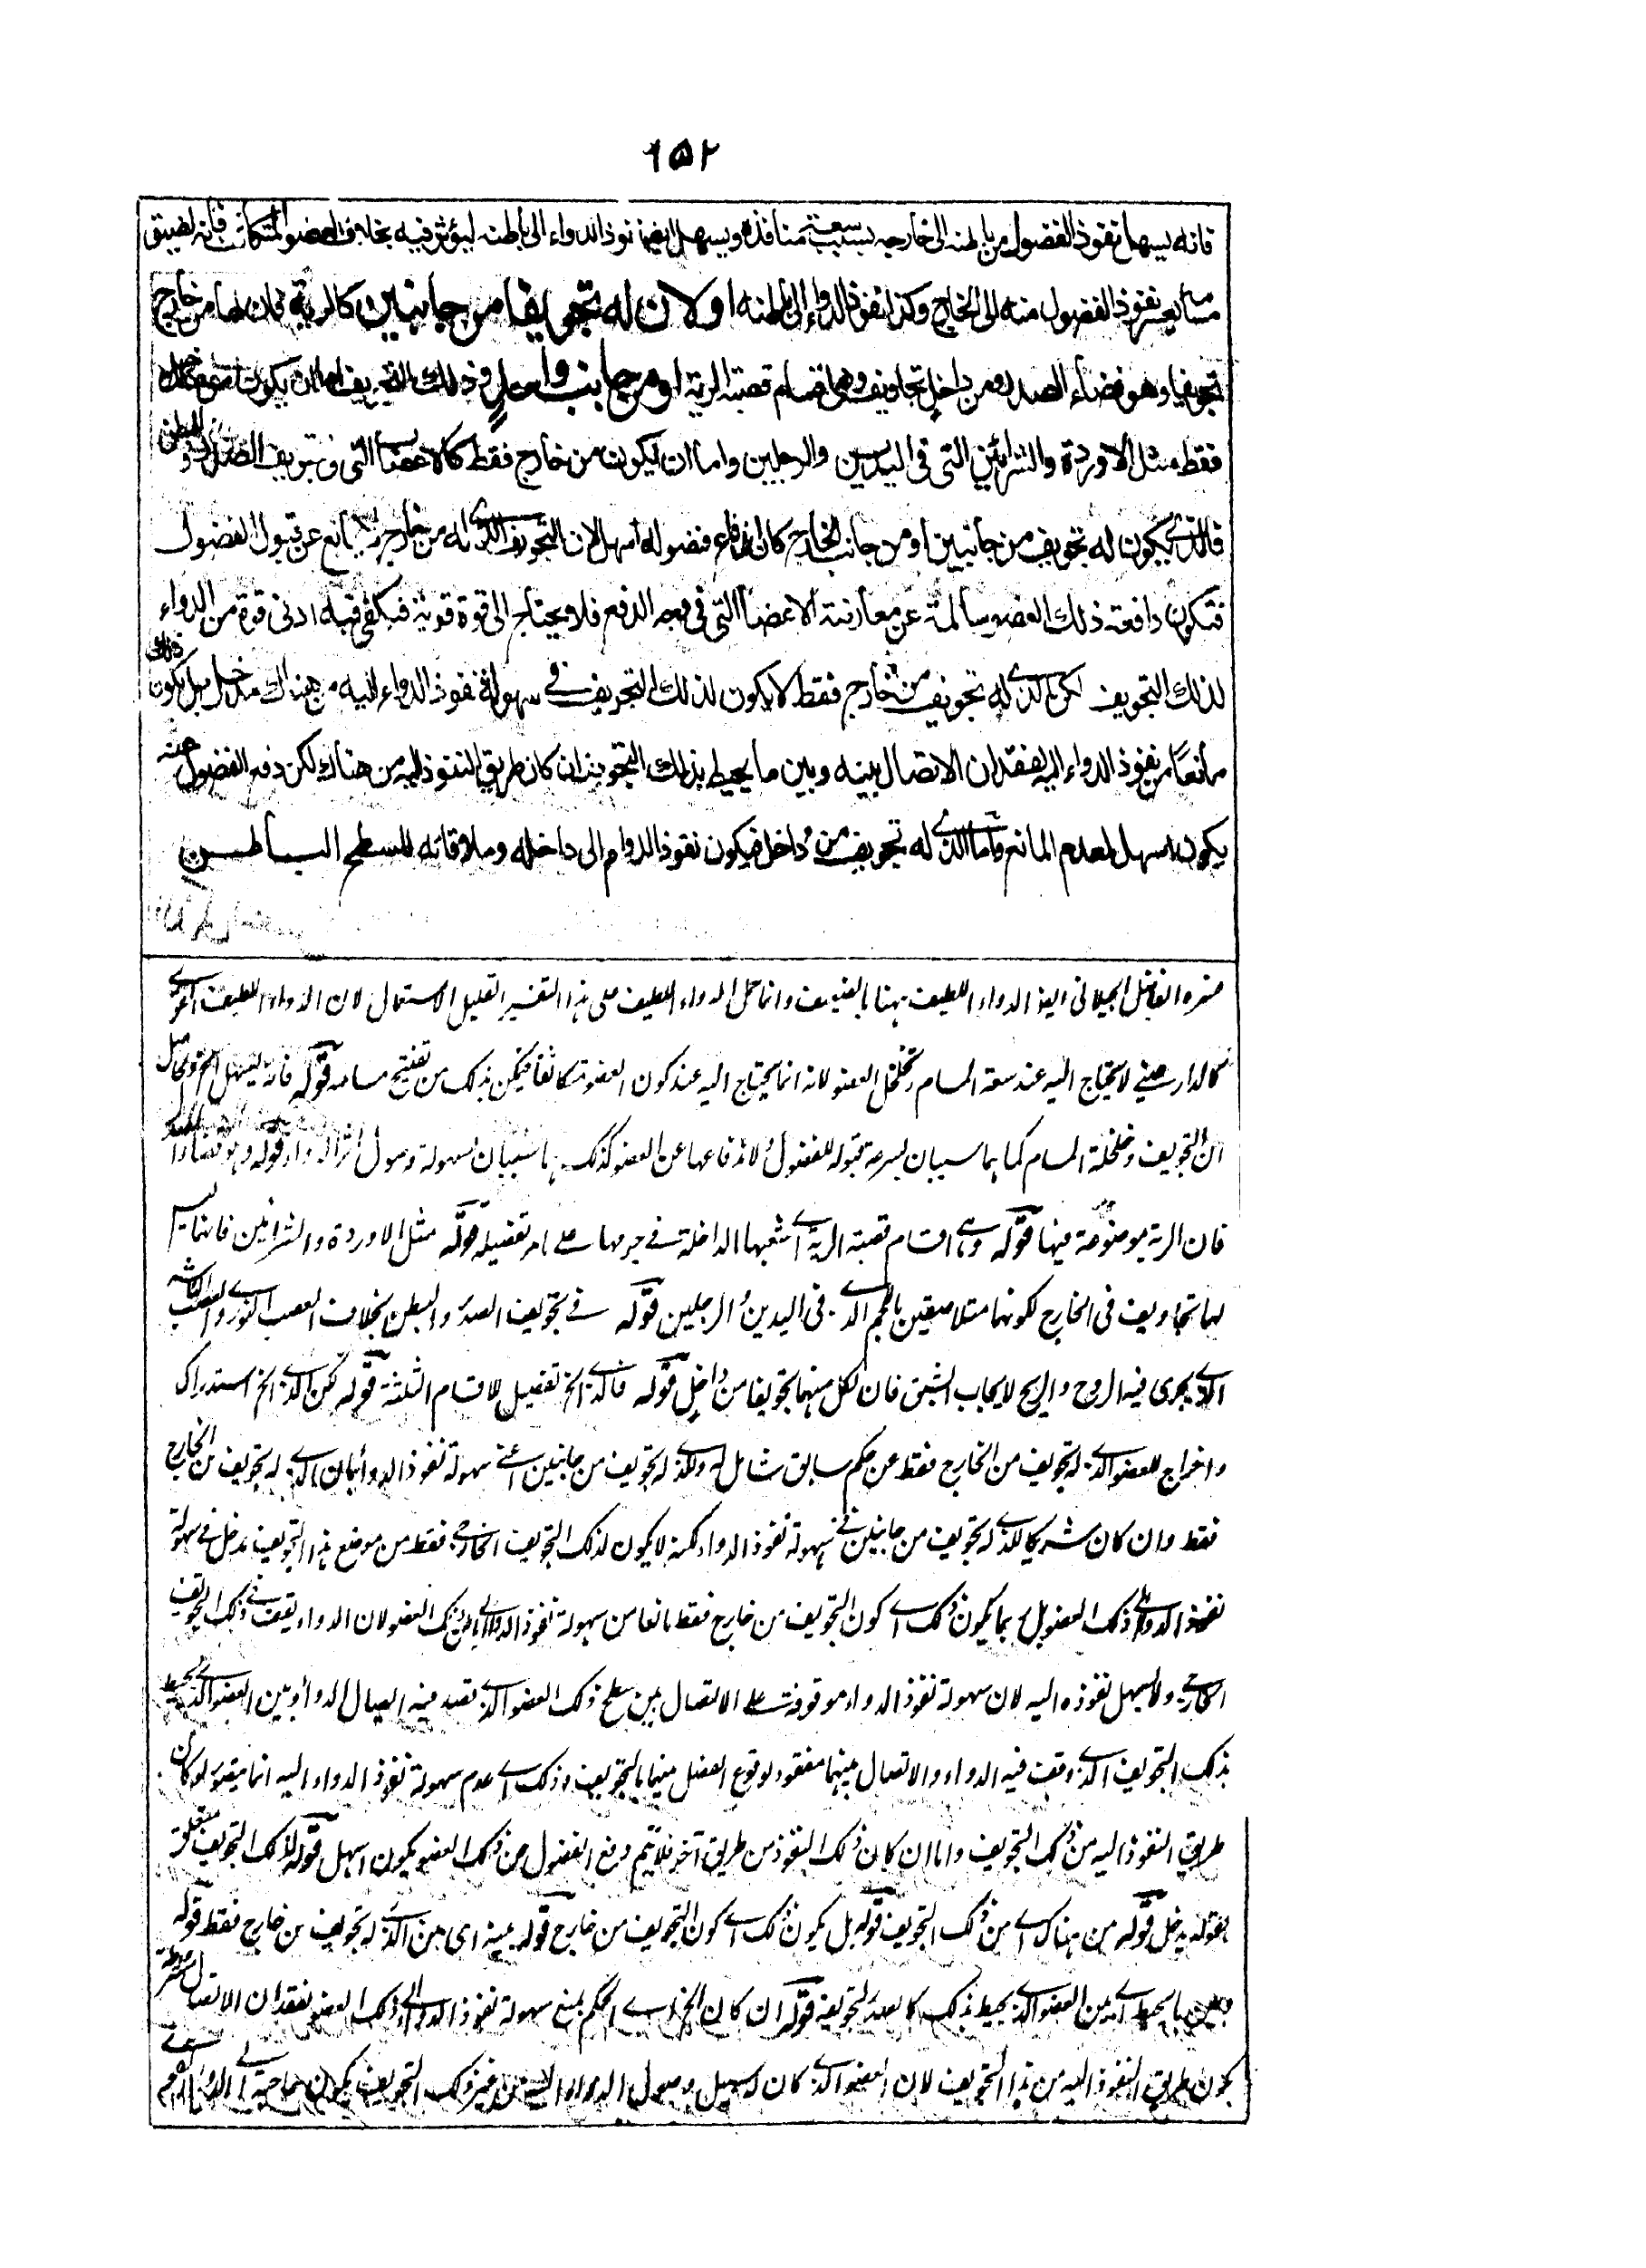 ١٥٢
فانه يسهل نفوذ الفضول من باطنه الى خارجه بسبب سعة منافذه ويسهل ايضا نفوذ الدواء الى باطنه ليؤثر فيه بخلاف العضو المتكاثف فانه لضيق
مسامه يعسر نفوذ الفضول منه الى الخارج وكذا نفوذ الدواء الى باطنه او لان له تجويفا من جانبين كالرية فان لها من خارج
تجويفا وهو فضاء الصدر ومن داخل تجاويف وهى اقسام قصبة الرية او من جانب واحد وذلك التجويف اما ان يكون من داخل
فقط مثل الاوردة والشرائين التى فى اليدين والرجلين واما ان يكون من خارج فقط كالاعضاء التى فى تجويف الصدر والبطن
فالذى يكون له تجويف من جانبين او من جانب الخارج كان اندفاع فضوله اسهل لان التجويف الذى له من خارج لا يمانع عن قبول الفضول
فتكون دافعة ذلك العضو سالمة عن معارضة الاعضاء التى فى وجه الدفع فلا يحتاج الى قوة قوية فيكفى فيه ادنى قوة من الدواء
لذلك التجويف لكن الذى له تجويف من خارج فقط لا يكون لذلك التجويف فى سهولة نفوذ الدواء اليه من هناك مدخل بل يكون ذلك
مانعا من نفوذ الدواء اليه لفقدان الاتصال بينه وبين ما يحيط بذلك التجويف ان كان طريق النفوذ اليه من هناك لكن دفع الفضول عنه
يكون اسهل لعدم المانع واما الذى له تجويف من داخل فيكون نفوذ الدواء الى داخله وملاقاته للسطح الباطن
فسره الفاضل الجيلانى ايضا الدواء اللطيف ههنا بالضعيف وانما حمل الدواء اللطيف على هذا التفسير القليل الاستعمال لان الدواء اللطيف القوى
كالدارصينى لا يحتاج اليه عند سعة المسام وتخلخل العضو لانه انما يحتاج اليه عند كون العضو متكاثفا فيتمكن بذلك من تفتيح مسامه قوله فانه يسهل الخ وحاصل
ان التجويف وخلخلة المسام كما هما سببان لسرعة قبوله للفضول ولاندفاعها عن العضو كذلك هما سببان لسهولة وصول اثر الدواء قوله وهو فضاء الصدر
فان الرية موضوعة فيها قوله وهى اقسام قصبة الرية اى شعبها الداخلة فى جرمها على ما مر تفصيله قوله مثل الاوردة والشرائين فانها ليس
لها تجاويف فى الخارج لكونها متلاصقين باللحم الذى فى اليدين والرجلين قوله فى تجويف الصدر والبطن بخلاف العصب النورى والعصب
الذى يجرى فيه الروح والريح لايجاب الشبق فان لكل منهما تجويفا من داخل قوله فالذى الخ تفصيل للاقسام الثلثة قوله لكن الذى الخ استدراك
واخراج للعضو الذى له تجويف من الخارج فقط عن حكم سابق شامل له وللذى له تجويف من جانبين اعنى سهولة نفوذ الدواء بان الذى له تجويف من الخارج
فقط وان كان شريكا للذى له تجويف من جانبين فى سهولة نفوذ الدواء لكنه لا يكون لذلك التجويف الخارجى فقط من موضع هذا التجويف مدخل فى سهولة
نفوذ الدواء الى ذلك العضو بل ربما يكون ذلك اى كون التجويف من خارج فقط مانعا من سهولة نفوذ الدواء الى باطن ذلك العضو لان الدواء يقف فى ذلك التجويف
الخارجى ولا يسهل نفوذه اليه لان سهولة نفوذ الدواء موقوفة على الاتصال بين سطح ذلك العضو الذى نقصد فيه ايصال الدواء وبين العضو الذى يحيط
بذلك التجويف الذى وقف فيه الدواء والاتصال بينهما مفقود لوقوع الفصل بينهما بالتجويف وذلك اى عدم سهولة نفوذ الدواء اليه انما يتصور لو كان
طريق النفوذ اليه من ذلك التجويف واما ان كان ذلك النفوذ من طريق آخر فلا ثم دفع الفضول عن ذلك العضو يكون اسهل قوله لذلك التجويف متعلق
بقوله مدخل قوله من هناك اى من ذلك التجويف قوله بل يكون ذلك اى كون التجويف من خارج قوله بينه اى بين الذى له تجويف من خارج فقط قوله
وبين ما يحيط اى بين العضو الذى يحيط بذلك كالصدر لتجويفه قوله ان كان الخ اى الحكم بمنع سهولة نفوذ الدواء الى ذلك العضو لفقدان الاتصال
بكون طريق النفوذ اليه من هذا التجويف لان العضو الذى كان له سبيل وصول الدواء اليه من غير ذلك التجويف يكون